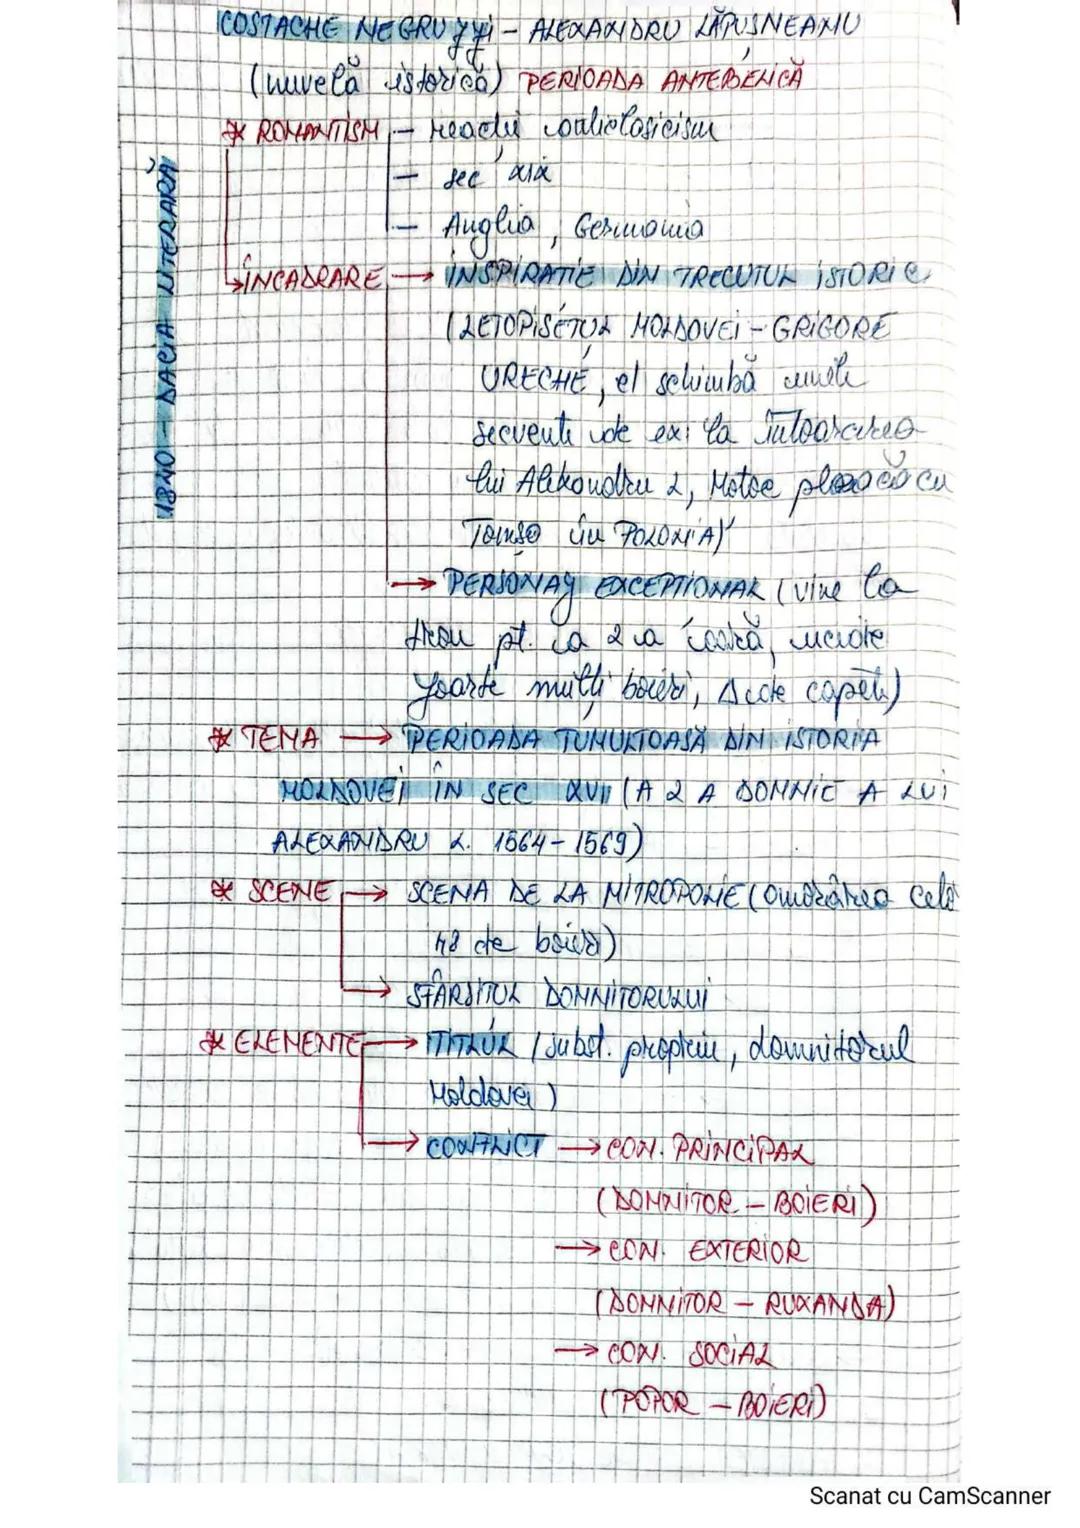 COSTACHE NEGRUZZI - ALEXANDRU LĂPUȘNEANU
(nuvelă istorică) PERIOADA ANTEBELICĂ
* ROMANTISM - reacție
- sec XIX
- Anglia, Germania
1840 - DACIA LITERARĂ
ÎNCADRARE → INSPIRAȚIE DIN TRECUTUL ISTORIC
(LETOPISEȚUL MOLDOVEI - GRIGORE
URECHE, el schimbă unele
secvențe de ex: la întoarcerea
lui Alexandru L, Motoc pleacă cu
Tomșa în POLONIA)
→ PERSONAJ EXCEPȚIONAL (vine la
tron pt. a 2 a oară, ucide
foarte mulți boieri, de capete)
* TEMA → PERIOADA TUMULTOASĂ DIN ISTORIA
MOLDOVEI ÎN SEC XVII (A 2 A DOMNIE A LUI
ALEXANDRU L. 1564-1569)
* SCENE → SCENA DE LA MITROPOLIE (omorârea celor
48 de boieri)
→ SFÂRȘITUL DOMNITORULUI
* ELEMENTE → TITLUL (subst. propriu, domnitorul
Moldovei)
→ CONFLICT → CON. PRINCIPAL
(DOMNITOR - BOIERI)
→ CON. EXTERIOR
(DOMNITOR - RUXANDA)
→ CON. SOCIAL
(POPOR - BOIERI)
Scanat cu CamScanner